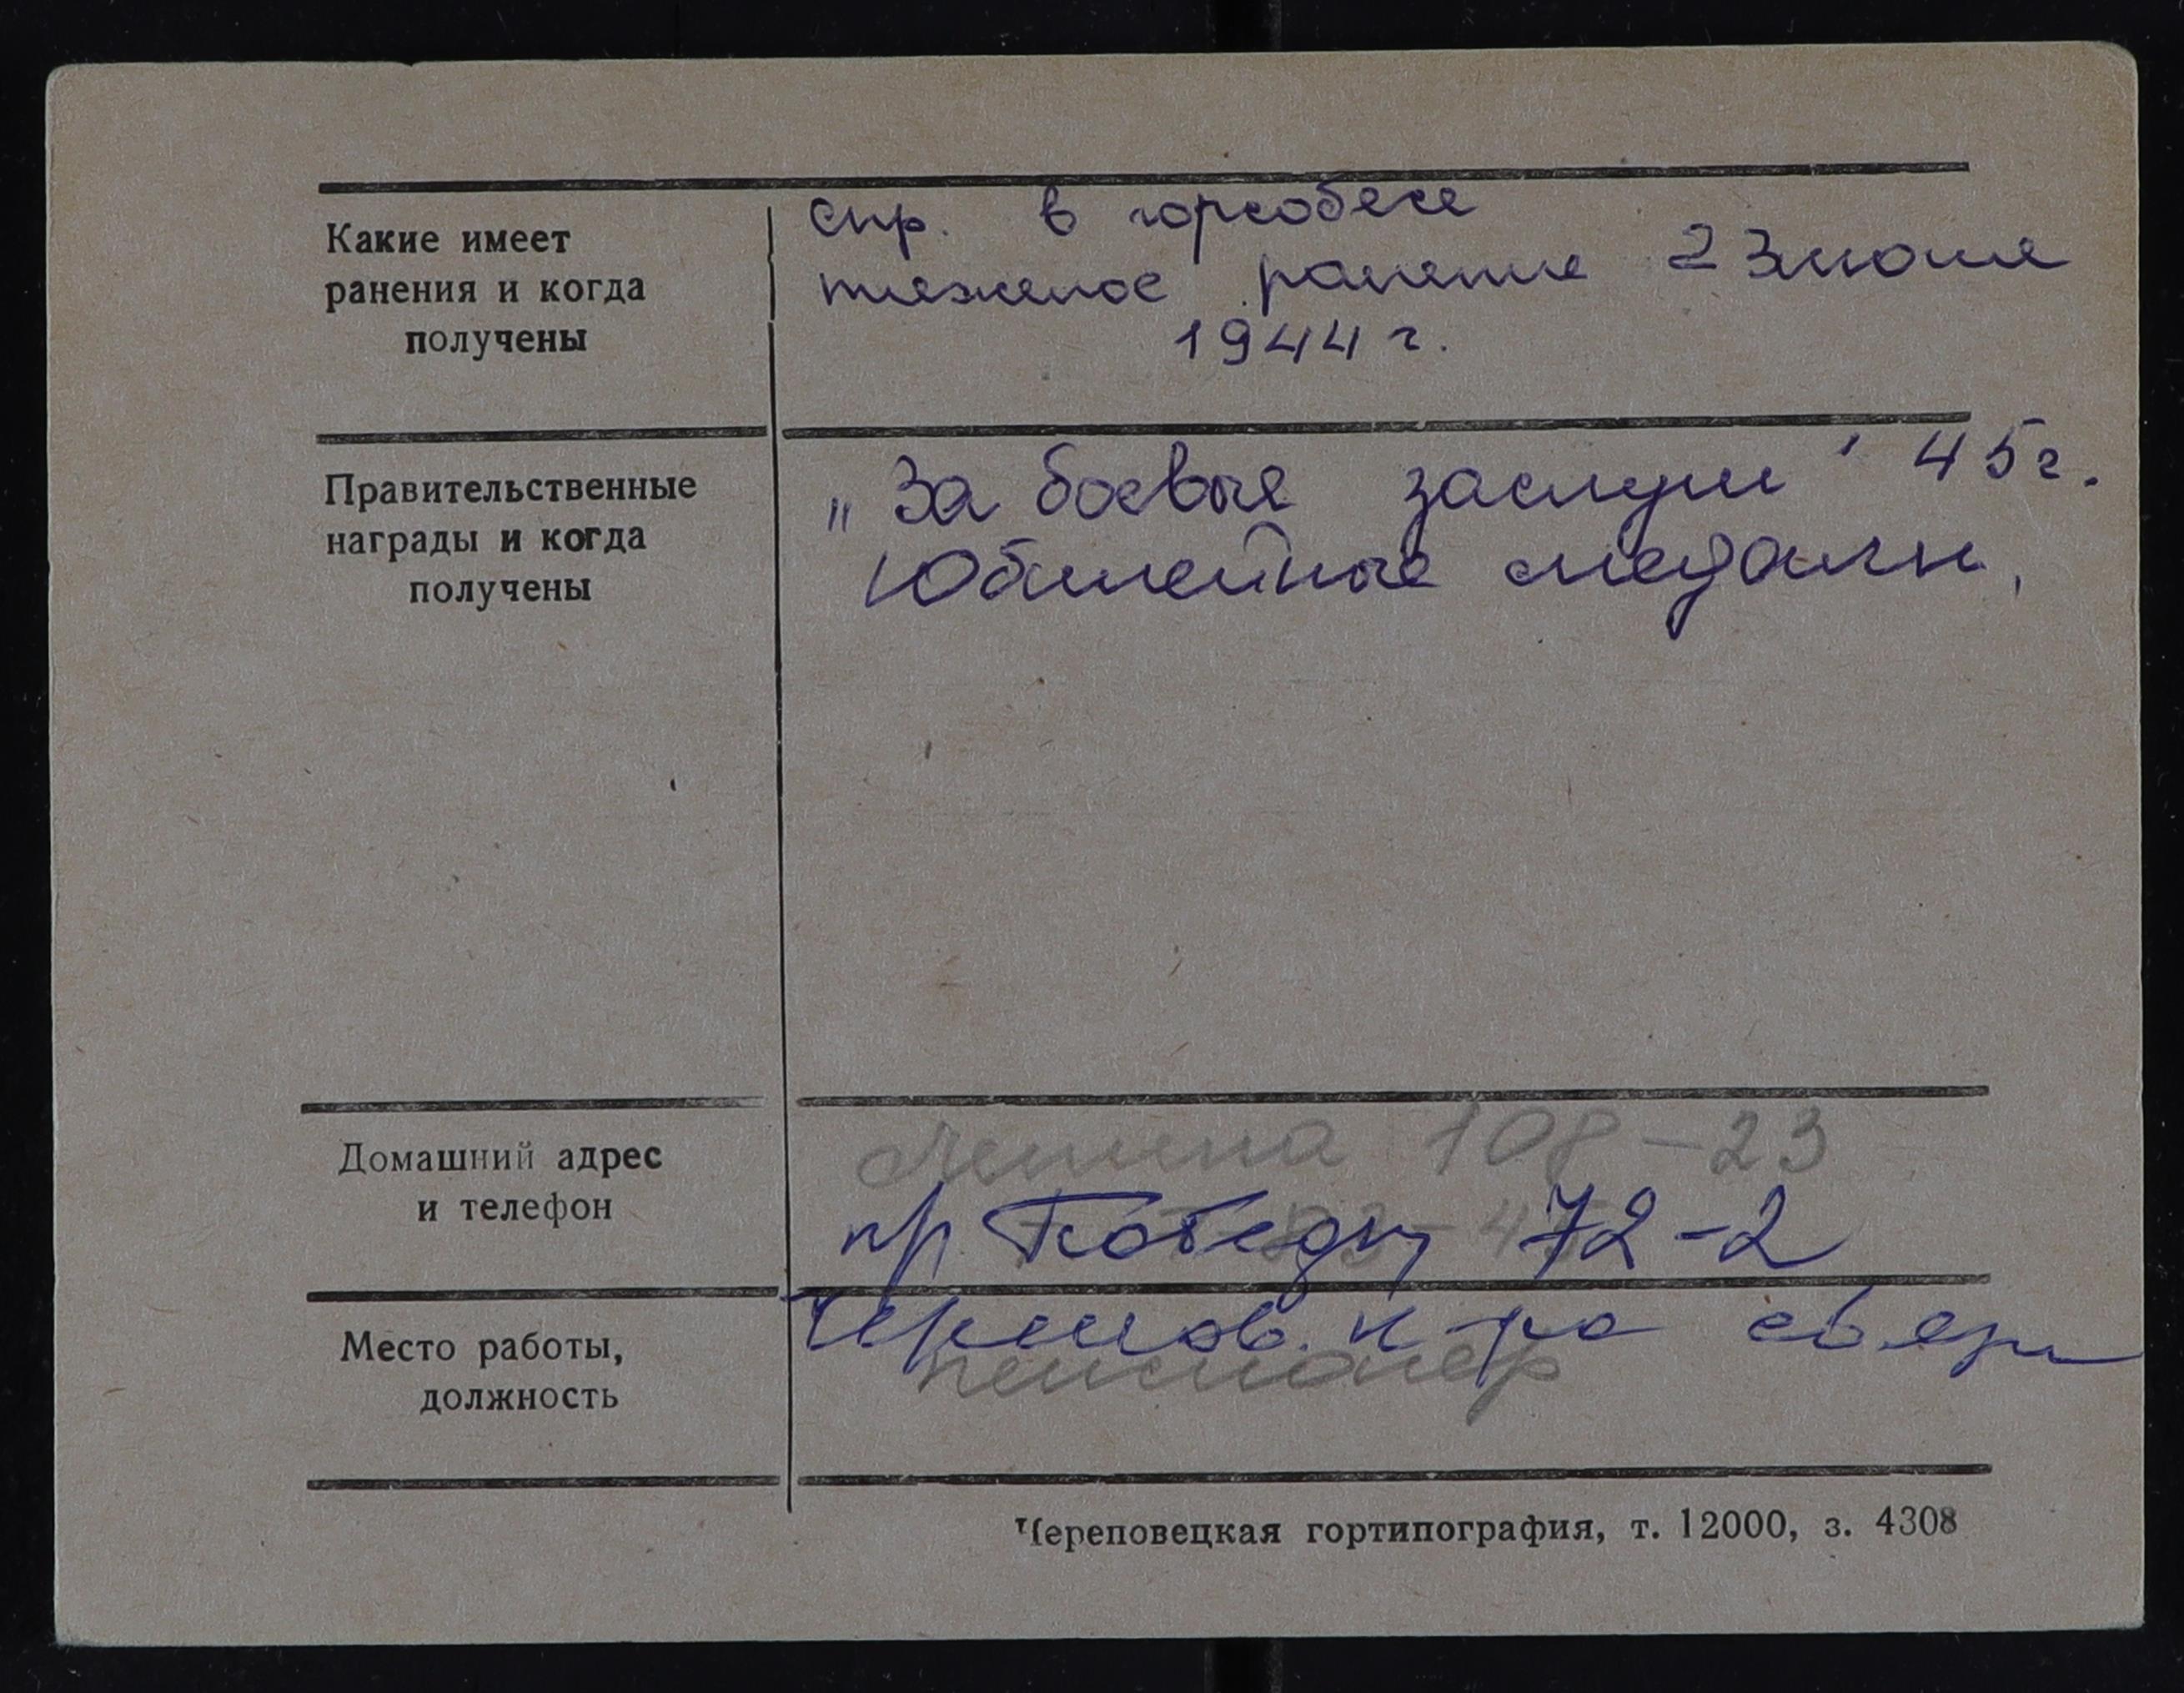 Какие имеет
ранения и когда
получены
спр. в горсобесе
тяжелое ранение 23 июня
1944 г.
Правительственные
награды и когда
получены
„За боевые заслуги" 45 г.
Юбилейные медали,
Домашний адрес
и телефон
Ленина 108-23
пр. Победы 72-2
Место работы,
должность
Черепов. к-ра связи
пенсионер
Череповецкая гортипография, т. 12000, з. 4308